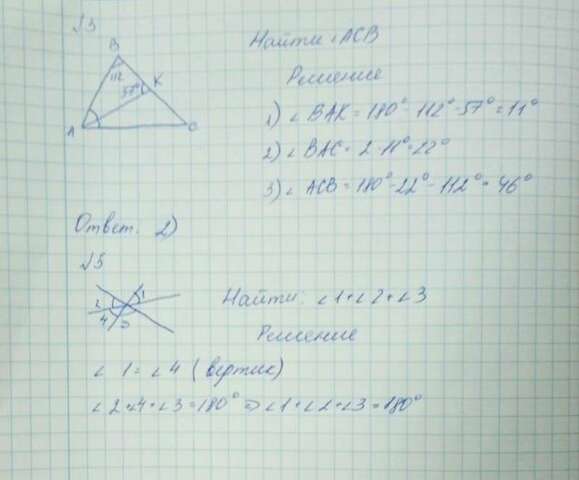 √3
Найти ∠ACB
B
112
57°
K
A
C
Решение
1) ∠ BAK = 180° - 112° - 57° = 11°
2) ∠ BAC = 2 · 11° = 22°
3) ∠ ACB = 180° - 22° - 112° = 46°
Ответ. 2)
√5
2
1
4
3
Найти: ∠1 + ∠2 + ∠3
Решение
∠ 1 = ∠ 4 (вертик)
∠ 2 + ∠4 + ∠ 3 = 180° ⇒ ∠1 + ∠2 + ∠3 = 180°